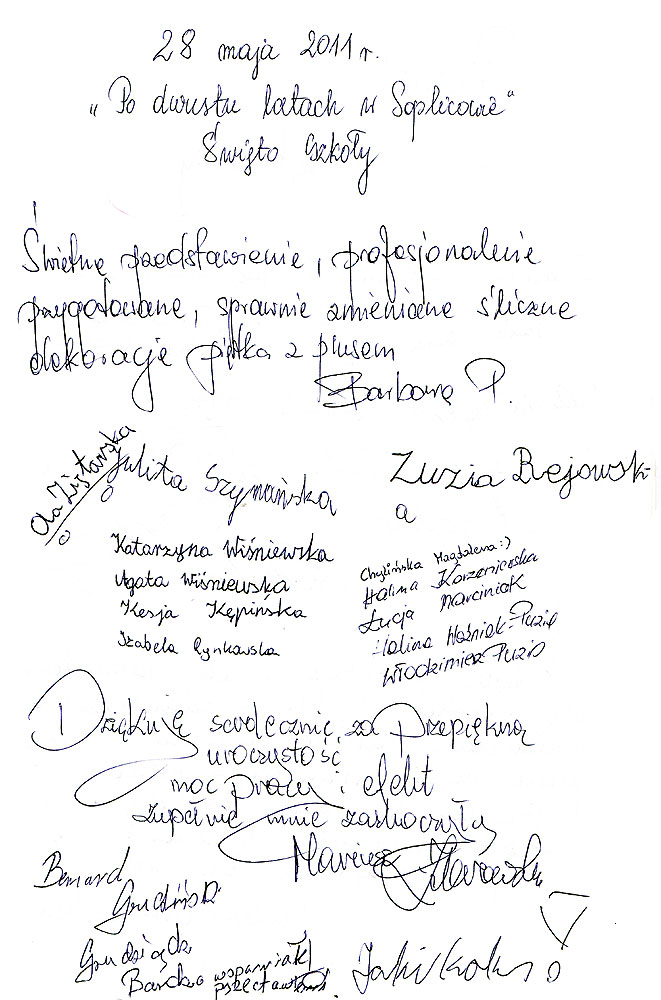 28 maja 2011 r.
„Po dwustu latach w Soplicowie"
Święto Szkoły
Świetne przedstawienie, profesjonalnie
przygotowane, sprawnie zmieniane śliczne
dekoracje piątka z plusem
Barbara P.
Julita Szymańska
Zuzia Rejowsk-
a
Ola
Katarzyna Wiśniewska
Agata Wiśniewska
Kesja Kępińska
Izabela Rynkowska
Chylińska Magdalena :)
Halina Korzeniewska
Łucja Marciniak
Halina Woźniak-Puzio
Włodzimierz Puzio
Dziękuję serdecznie za przepiękną
uroczystość
moc pracy i efekt
zupełnie mnie zaskoczyły
Mariusz
Bernard
Grudziński
Grudziądz
Bardzo wspaniałe